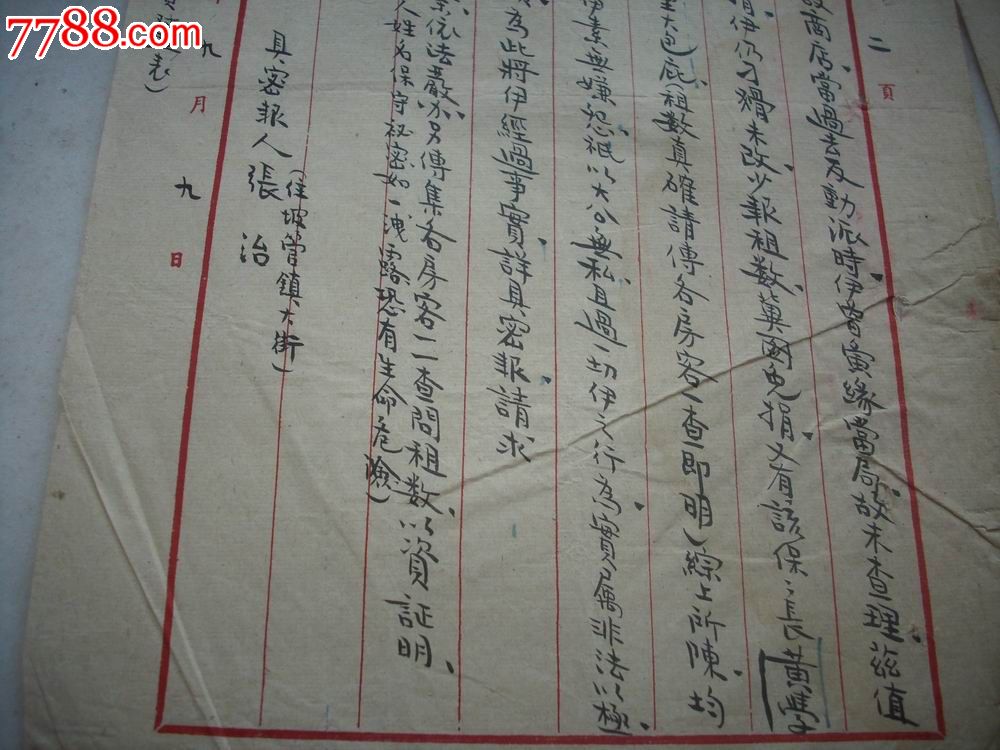 7788.com
二頁
設商店當過去反動派時伊曾夤緣當局故未查理茲值
伊仍刁猾未改少報租数冀圖免捐又有該保、長黃學
大包庇(租数真確請傳各房客一查即明)綜上所陳均
伊素無嫌怨祇以大公無私且過一切伊之行為實属非法以極
為此將伊經過事實詳具密報請求
依法嚴办另傳集各房客一一查問租数以資証明
人姓名保守祕密如一洩露恐有生命危險)
具密報人張治(住坡營鎮大街)
九月九日
表)